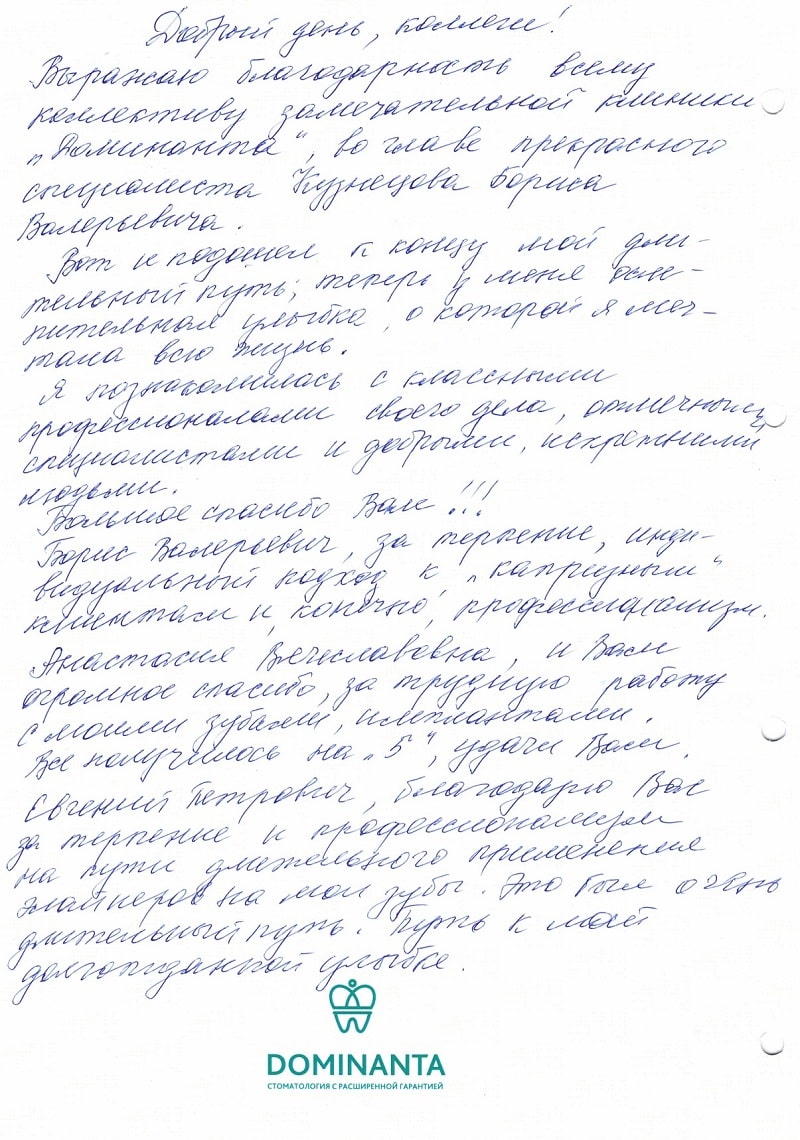 Добрый день, коллеги!
Выражаю благодарность всему
коллективу замечательной клиники
„Доминанта“, во главе прекрасного
специалиста Кузнецова Бориса
Валерьевича.
Вот и подошел к концу мой дли-
тельный путь; теперь у меня осле-
пительная улыбка, о которой я меч-
тала всю жизнь.
Я познакомилась с классными
профессионалами своего дела, отличными
специалистами и добрыми, искренними
людьми.
Большое спасибо Вам!!!
Борис Валерьевич, за терпение, инди-
видуальный подход к „капризным“
клиентам и, конечно, профессионализм.
Анастасия Вячеславовна, и Вам
огромное спасибо, за трудную работу
с моими зубами, имплантами.
Все получилось на „5“, удачи Вам.
Евгений Петрович, благодарю Вас
за терпение и профессионализм
на пути длительного применения
элайнеров на мои зубы. Это был очень
длительный путь. Путь к моей
долгожданной улыбке.
DOMINANTA
СТОМАТОЛОГИЯ С РАСШИРЕННОЙ ГАРАНТИЕЙ